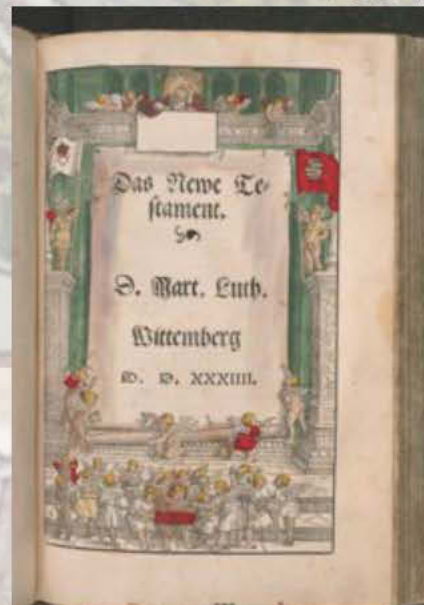 Das Newe Te-
stament.
D. Mart. Luth.
Wittemberg
M. D. XXXIIII.